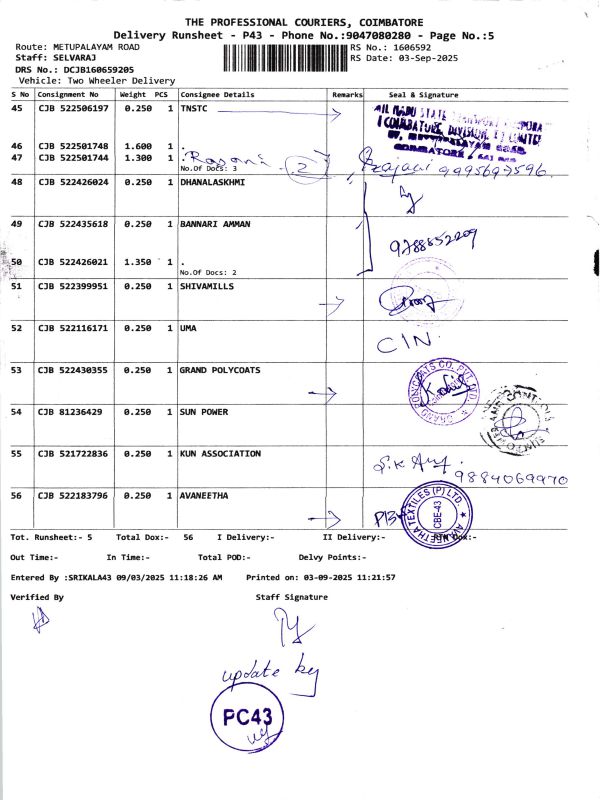 THE PROFESSIONAL COURIERS, COIMBATORE
Delivery Runsheet - P43 - Phone No.:9047080280 - Page No.:5
Route: METUPALAYAM ROAD RS No.: 1606592
Staff: SELVARAJ RS Date: 03-Sep-2025
DRS No.: DCJB160659205
Vehicle: Two Wheeler Delivery
S No Consignment No Weight PCS Consignee Details Remarks Seal & Signature
45 CJB 522506197 0.250 1 TNSTC
46 CJB 522501748 1.600 1 .
47 CJB 522501744 1.300 1 . Rajani 2 Rajani 9995697596
No.Of Docs: 3
48 CJB 522426024 0.250 1 DHANALASKHMI
49 CJB 522435618 0.250 1 BANNARI AMMAN 9788852209
50 CJB 522426021 1.350 1 .
No.Of Docs: 2
51 CJB 522399951 0.250 1 SHIVAMILLS
52 CJB 522116171 0.250 1 UMA CIN.
53 CJB 522430355 0.250 1 GRAND POLYCOATS
GRAND POLYCOATS CO. PVT. LTD.
54 CJB 81236429 0.250 1 SUN POWER
55 CJB 521722836 0.250 1 KUN ASSOCIATION 9884069970
56 CJB 522183796 0.250 1 AVANEETHA
AVANEETHA TEXTILES (P) LTD. CBE-43
Tot. Runsheet:- 5 Total Dox:- 56 I Delivery:- II Delivery:-
Out Time:- In Time:- Total POD:- Delvy Points:-
Entered By :SRIKALA43 09/03/2025 11:18:26 AM Printed on: 03-09-2025 11:21:57
Verified By Staff Signature
update by
PC43